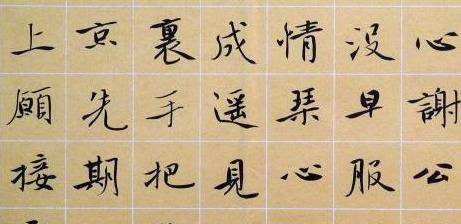 心謝公
没早服
情琴心
成遥見
裏手把
京先期
上願接